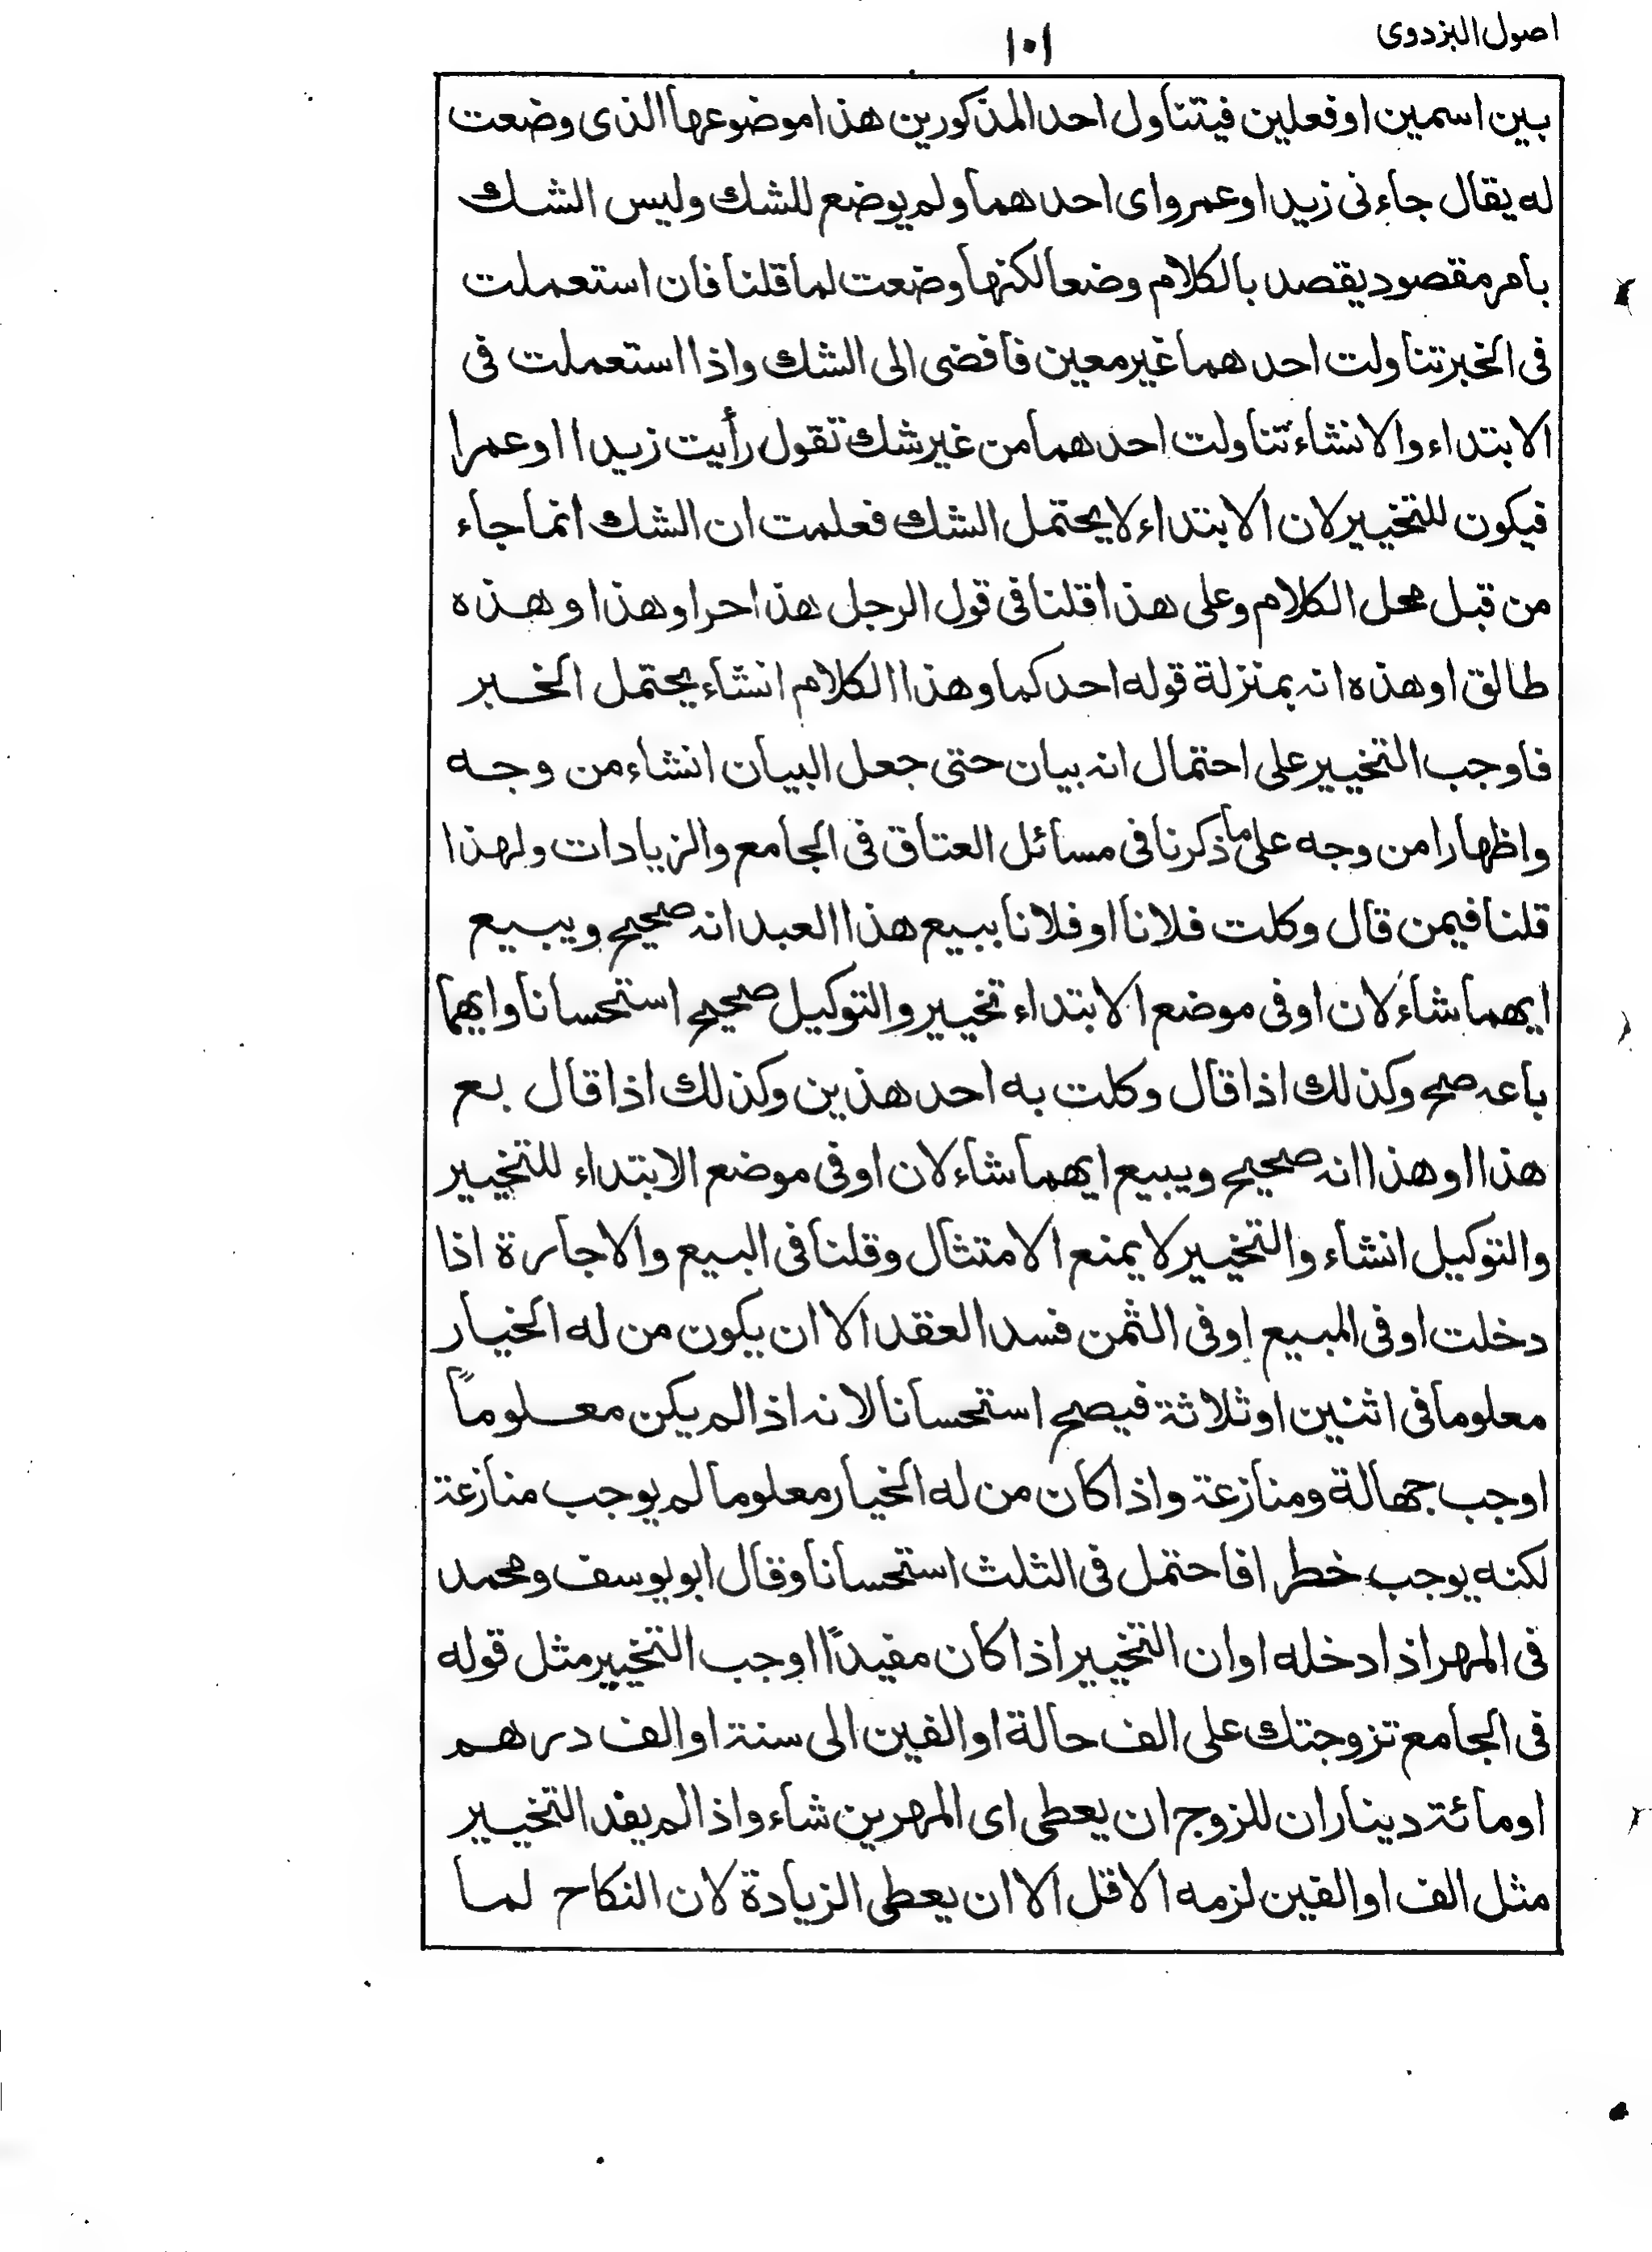 اصول البزدوى
١٠١
بين اسمين او فعلين فيتناول احد المذكورين هذا موضوعها الذى وضعت
له يقال جاءنى زيد او عمرو اى احدهما ولم يوضع للشك وليس الشك
بامر مقصود يقصد بالكلام وضعا لكنها وضعت لما قلنا فان استعملت
فى الخبر تناولت احدهما غير معين فافضى الى الشك واذا استعملت فى
الابتداء والانشاء تناولت احدهما من غير شك تقول رأيت زيدا او عمرا
فيكون للتخيير لان الابتداء لا يحتمل الشك فعلمت ان الشك انما جاء
من قبل محل الكلام وعلى هذا قلنا فى قول الرجل هذا حر او هذا وهذه
طالق او هذه انه بمنزلة قوله احدكما وهذا الكلام انشاء يحتمل الخبر
فاوجب التخيير على احتمال انه بيان حتى جعل البيان انشاء من وجه
واظهارا من وجه على ما ذكرنا فى مسائل العتاق فى الجامع والزيادات ولهذا
قلنا فيمن قال وكلت فلانا او فلانا ببيع هذا العبد انه صحيح ويبيع
ايهما شاء لان او فى موضع الابتداء تخيير والتوكيل صحيح استحسانا وايهما
باعه صح وكذلك اذا قال وكلت به احد هذين وكذلك اذا قال بع
هذا او هذا انه صحيح ويبيع ايهما شاء لان او فى موضع الابتداء للتخيير
والتوكيل انشاء والتخيير لا يمنع الامتثال وقلنا فى البيع والاجارة اذا
دخلت او فى المبيع او فى الثمن فسد العقد الا ان يكون من له الخيار
معلوما فى اثنين او ثلاثة فيصح استحسانا لانه اذا لم يكن معلوماً
اوجب جهالة ومنازعة واذا كان من له الخيار معلوما لم يوجب منازعة
لكنه يوجب خطرا فاحتمل فى الثلث استحسانا وقال ابو يوسف ومحمد
فى المهر اذا دخله او ان التخيير اذا كان مفيدًا اوجب التخيير مثل قوله
فى الجامع تزوجتك على الف حالة او الفين الى سنة او الف درهم
او مائة دينار ان للزوج ان يعطى اى المهرين شاء واذا لم يفد التخيير
مثل الف او الفين لزمه الاقل الا ان يعطى الزيادة لان النكاح لما